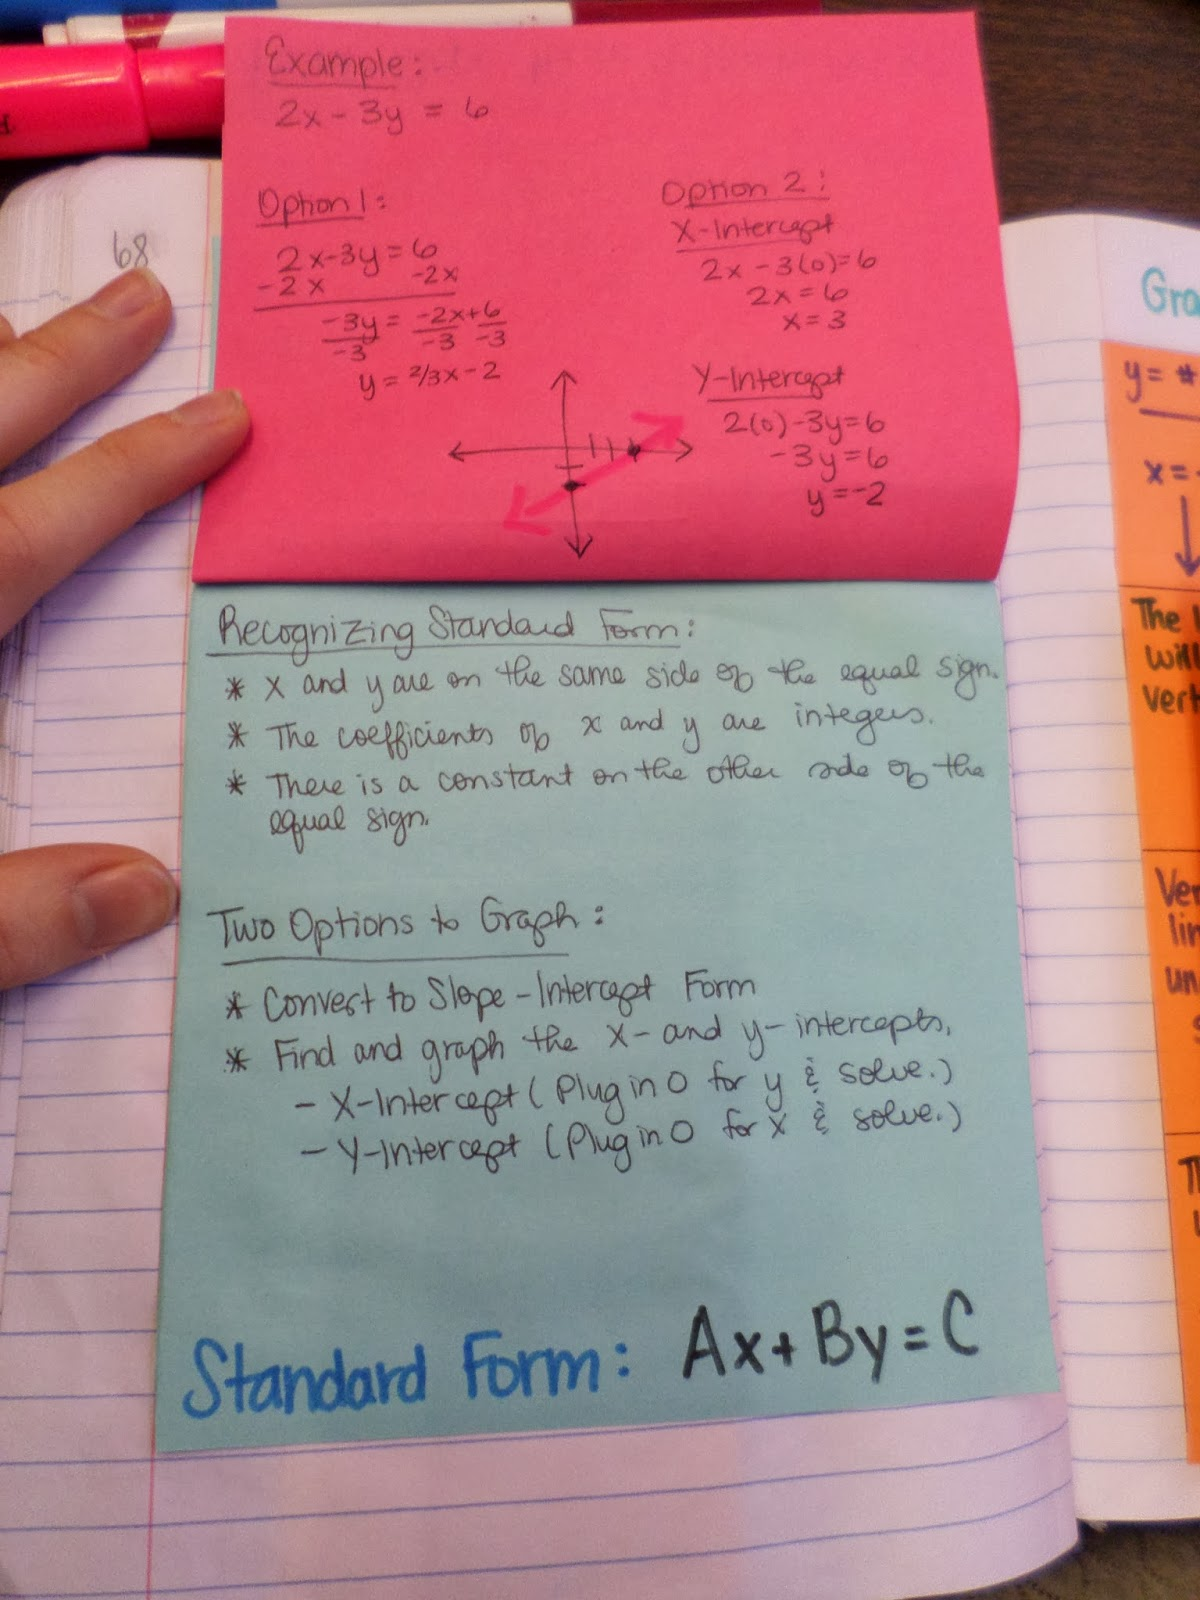 Example:
2x - 3y = 6
Option 1:
2x-3y=6
-2x -2x
-3y = -2x+6
-3 -3 -3
y = 2/3x - 2
Option 2:
X-Intercept
2x - 3(0)=6
2x = 6
x = 3
Y-Intercept
2(0)-3y=6
-3y=6
y=-2
68
Recognizing Standard Form:
* X and y are on the same side of the equal sign.
* The coefficients of x and y are integers.
* There is a constant on the other side of the
equal sign.
Two Options to Graph:
* Convert to Slope-Intercept Form
* Find and graph the X- and y-intercepts.
- X-Intercept (Plug in 0 for y & solve.)
- Y-Intercept (Plug in 0 for X & solve.)
Standard Form: Ax+By=C
y= #
x=
The
will
vert
un